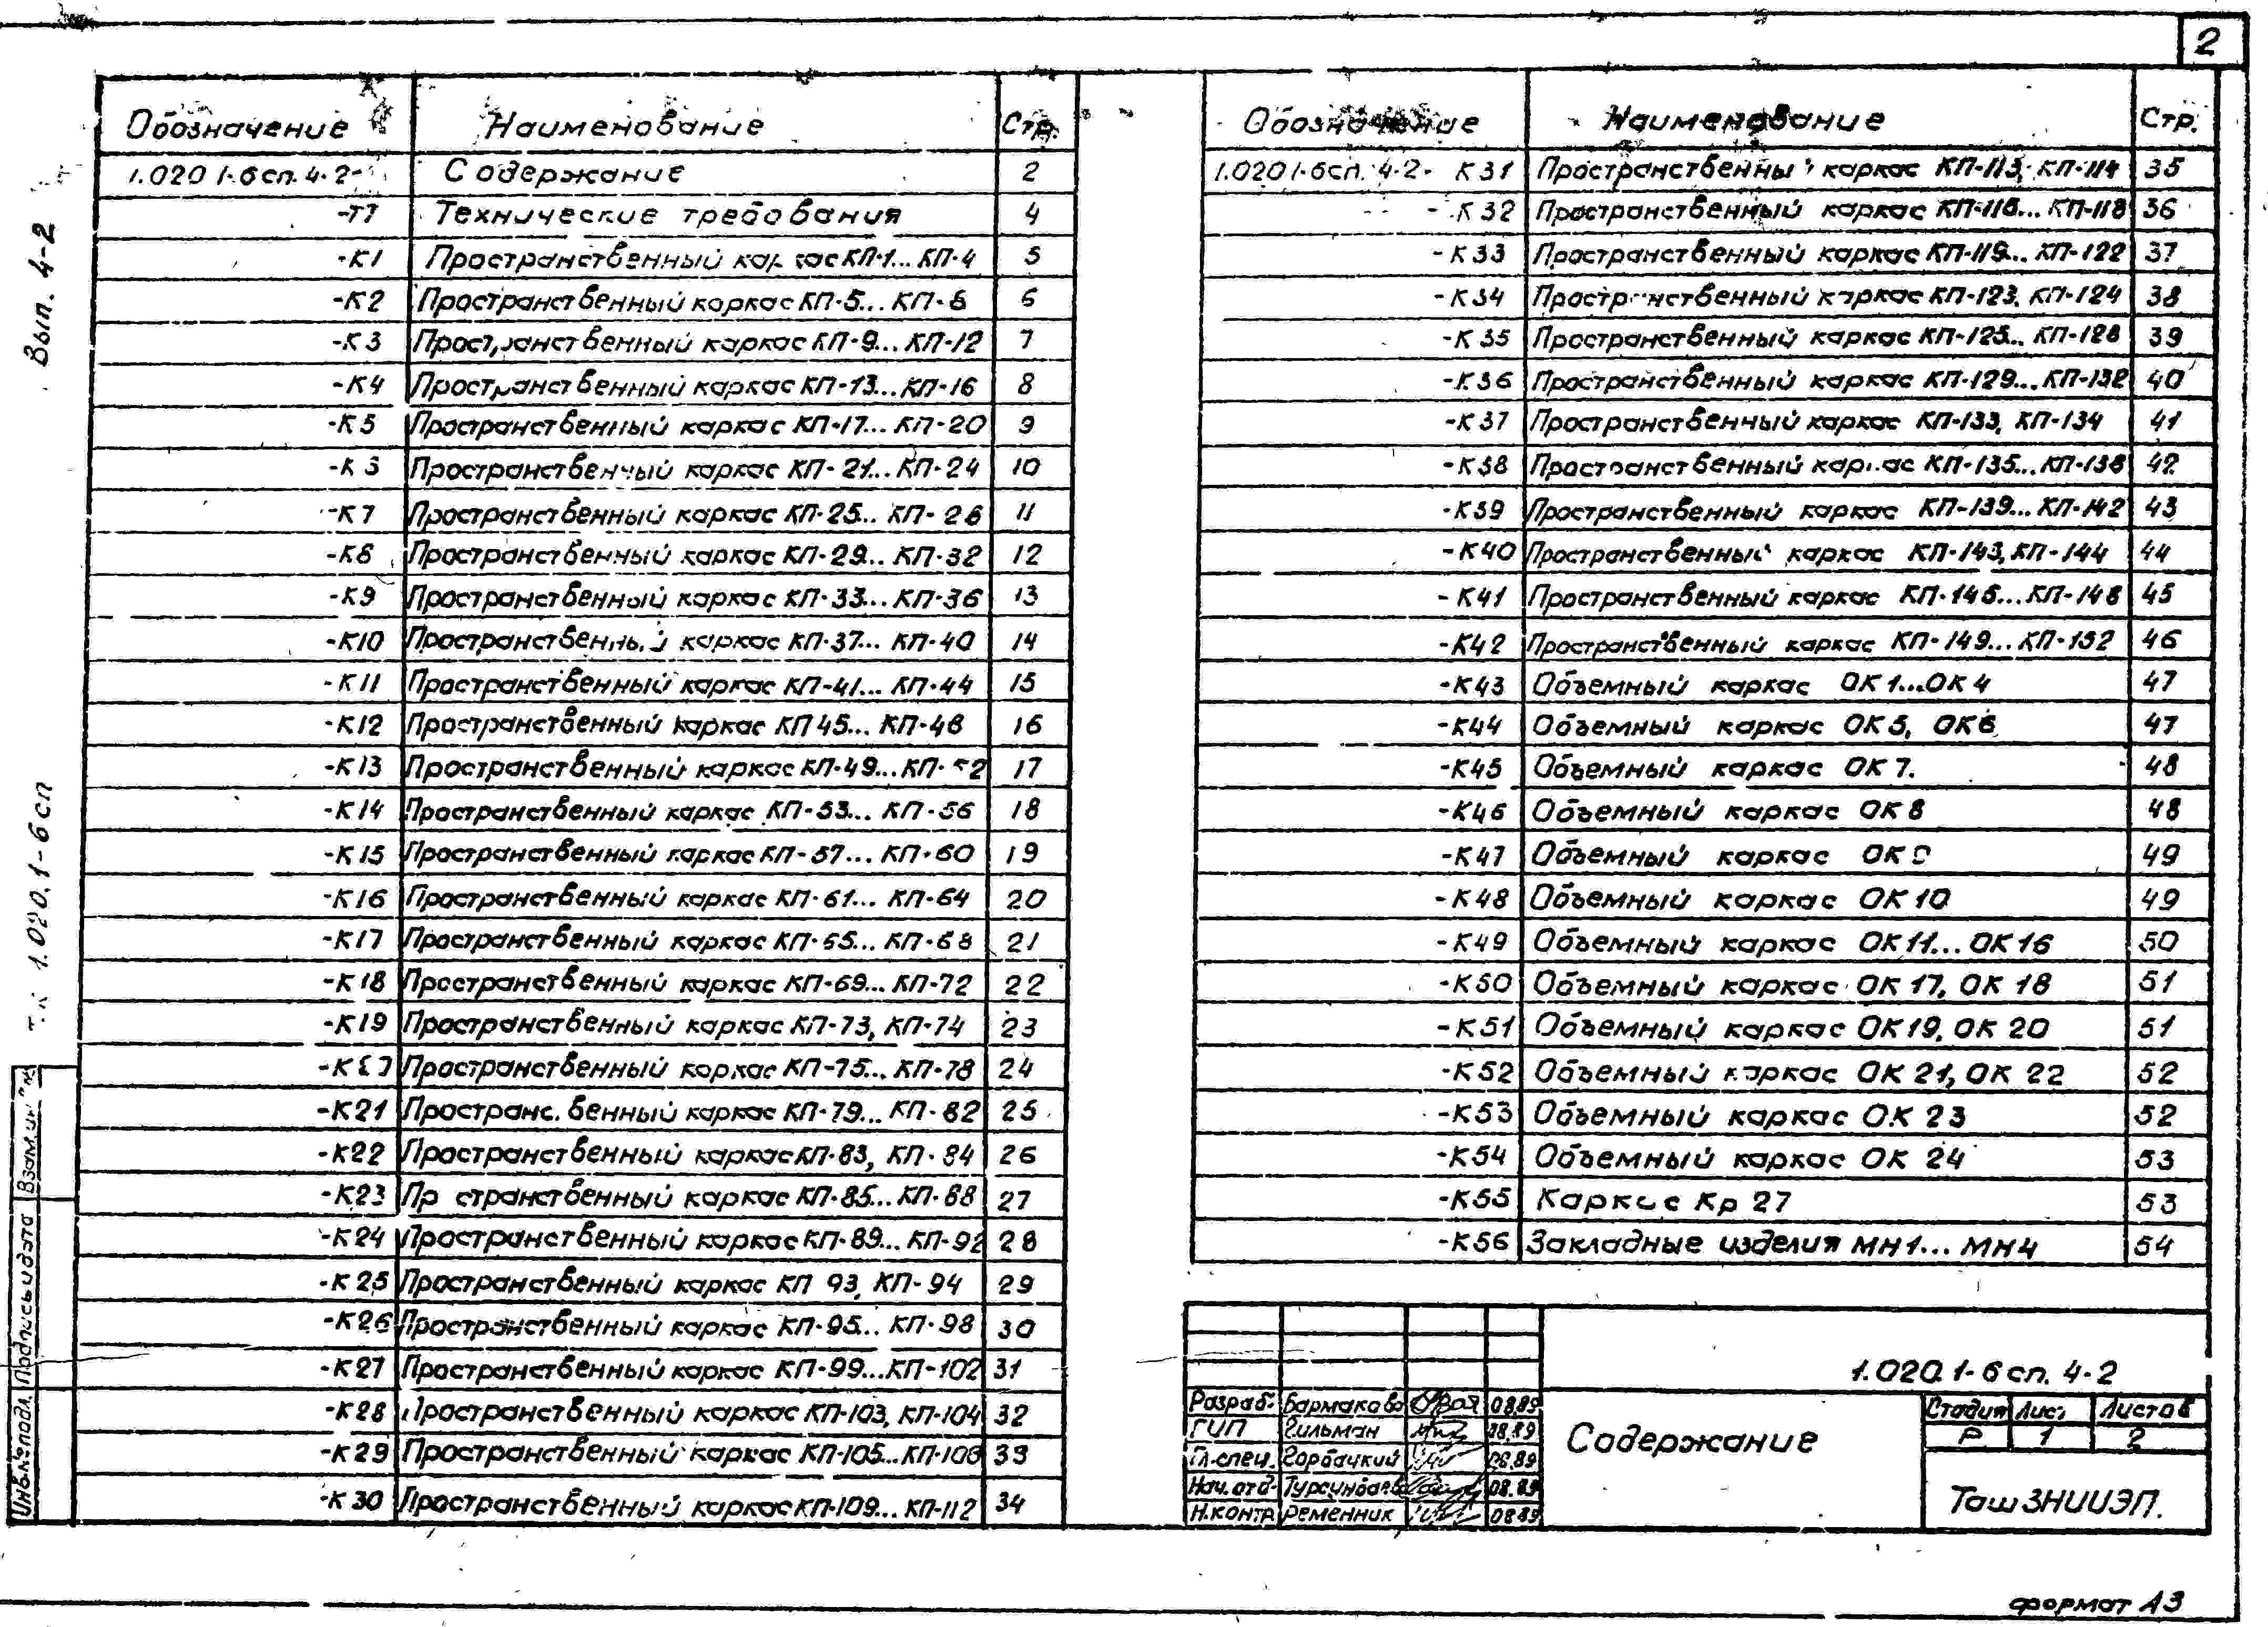 2
Обозначение Наименование Стр.
1.020 1-6сп. 4-2- Содержание 2
-ТТ Технические требования 4
-К1 Пространственный каркас КП-1... КП-4 5
-К2 Пространственный каркас КП-5... КП-8 6
-К3 Пространственный каркас КП-9... КП-12 7
-К4 Пространственный каркас КП-13... КП-16 8
-К5 Пространственный каркас КП-17... КП-20 9
-К6 Пространственный каркас КП-21... КП-24 10
-К7 Пространственный каркас КП-25... КП-28 11
-К8 Пространственный каркас КП-29... КП-32 12
-К9 Пространственный каркас КП-33... КП-36 13
-К10 Пространственный каркас КП-37... КП-40 14
-К11 Пространственный каркас КП-41... КП-44 15
-К12 Пространственный каркас КП 45... КП-48 16
-К13 Пространственный каркас КП-49... КП-52 17
-К14 Пространственный каркас КП-53... КП-56 18
-К15 Пространственный каркас КП-57... КП-60 19
-К16 Пространственный каркас КП-61... КП-64 20
-К17 Пространственный каркас КП-65... КП-68 21
-К18 Пространственный каркас КП-69... КП-72 22
-К19 Пространственный каркас КП-73, КП-74 23
-К20 Пространственный каркас КП-75... КП-78 24
-К21 Пространственный каркас КП-79... КП-82 25
-К22 Пространственный каркас КП-83, КП-84 26
-К23 Пространственный каркас КП-85... КП-88 27
-К24 Пространственный каркас КП-89... КП-92 28
-К25 Пространственный каркас КП 93, КП-94 29
-К26 Пространственный каркас КП-95... КП-98 30
-К27 Пространственный каркас КП-99... КП-102 31
-К28 Пространственный каркас КП-103, КП-104 32
-К29 Пространственный каркас КП-105... КП-108 33
-К30 Пространственный каркас КП-109... КП-112 34
Обозначение Наименование Стр.
1.020 1-6сп. 4-2- К31 Пространственный каркас КП-113, КП-114 35
-К32 Пространственный каркас КП-115... КП-118 36
-К33 Пространственный каркас КП-119... КП-122 37
-К34 Пространственный каркас КП-123, КП-124 38
-К35 Пространственный каркас КП-125... КП-128 39
-К36 Пространственный каркас КП-129... КП-132 40
-К37 Пространственный каркас КП-133, КП-134 41
-К38 Пространственный каркас КП-135... КП-138 42
-К39 Пространственный каркас КП-139... КП-142 43
-К40 Пространственный каркас КП-143, КП-144 44
-К41 Пространственный каркас КП-145... КП-148 45
-К42 Пространственный каркас КП-149... КП-152 46
-К43 Объемный каркас ОК 1...ОК 4 47
-К44 Объемный каркас ОК 5, ОК6 47
-К45 Объемный каркас ОК 7. 48
-К46 Объемный каркас ОК 8 48
-К47 Объемный каркас ОК 9 49
-К48 Объемный каркас ОК 10 49
-К49 Объемный каркас ОК 11... ОК 16 50
-К50 Объемный каркас ОК 17, ОК 18 51
-К51 Объемный каркас ОК 19, ОК 20 51
-К52 Объемный каркас ОК 21, ОК 22 52
-К53 Объемный каркас ОК 23 52
-К54 Объемный каркас ОК 24 53
-К55 Каркас Кр 27 53
-К56 Закладные изделия МН1... МН4 54
1.020.1-6 сп. 4-2
Разраб. Бармакова 08.89
ГИП Гильман 08.89
Гл.спец. Горбацкий 08.89
Нач.отд. Турсунбаева 08.89
Н.контр Ременник 08.89
Содержание
Стадия Лист Листов
Р 1 2
ТашЗНИИЭП.
формат А3
Вып. 4-2
1.020.1-6 сп
Взам.инв.№
Подпись и дата
Инв.№ подл.